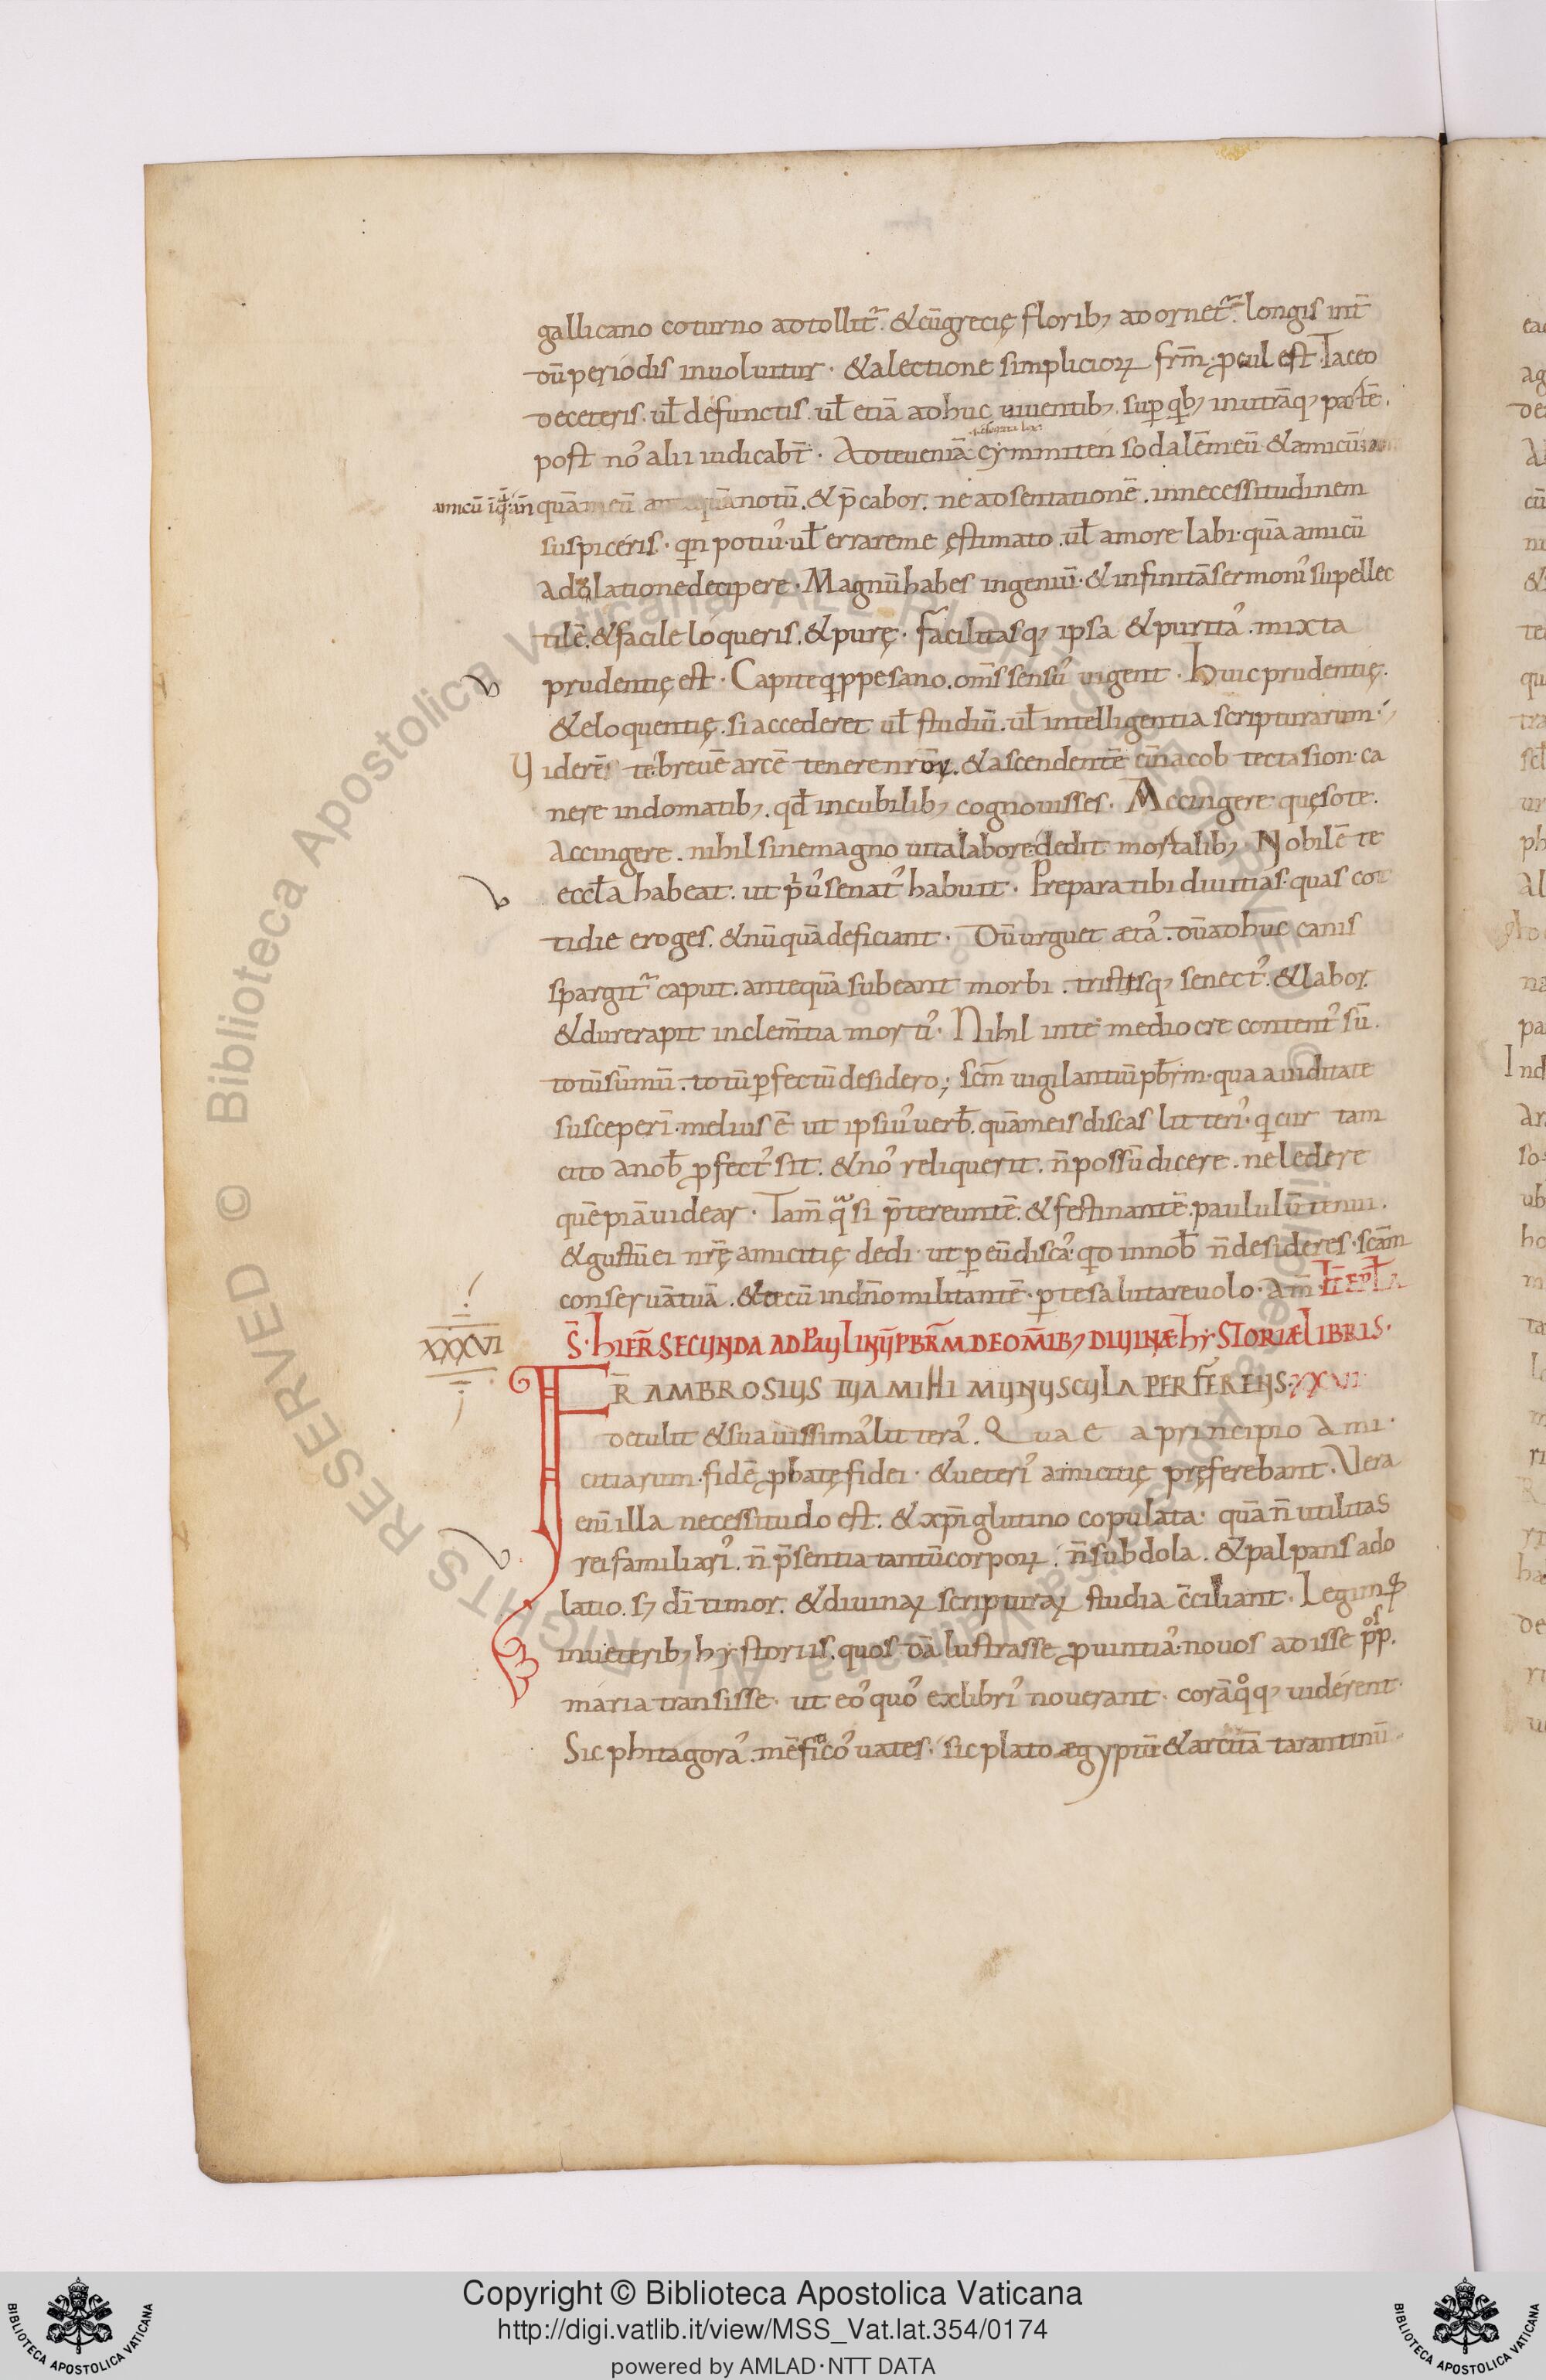 gallicano coturno adtollit̃. &cũgrecię floribꝫ adornet̃. longis int̃
dũperiodis inuoluitur. &alectione simpliciorꝝ frm̃. ꝓcul est. Taceo
deceteris. uł defunctis. uł etiã adhuc uiuentibꝫ. suꝑ qͥbꝫ inutrãqꝫ partẽ.
post noꝰ alii iudicabt̃. Adteueniã cymmiten sodalẽmeũ &amicũ
amicũ
quãmeũ antequãnotũ. &p̃cabor. ne adsentationẽ. innecessitudinem
suspiceris. qͥn potiuꝰ. uł errareme ęstimato. uł amore labi. quã amicũ
adolationedecipere. Magnũhabes ingeniũ. &infinitãsermoniꝰ supellec
tilẽ. &facile loqueris. &purę. facilitasqꝫ ipsa &puritaꝰ. mixta
prudentię est. Capiteqͥppesano. om̃s sensuꝰ uigent. huic prudentię.
&eloquentię. si accederet uł studiũ. uł intelligentia scripturarum.
Viderẽ te breuẽ arcẽ tenere nrõꝝ. &ascendentẽ cũiacob tectasion. ca
nere indomatibꝫ. qđ incubilibꝫ cognouisses. Accingere quęsote.
Accingere. nihil sinemagno uitalaborededit mortalibꝫ. Nobilẽ te
eccła habeat. ut pͥuꝰ senatꝰ habuit. Prepara tibi diuitias. quas cot
tidie eroges. &nũquãdeficiant. Dũurguet ætaꝰ. dũadhuc canis
spargit̃ caput. antequã subeant morbi. tristisqꝫ senectꝰ. &labor.
&durerapit inclem̃tia mortiꝰ. Nihil inte mediocre contentꝰ sũ.
totũsũmũ. totũꝑfectũdesidero; scm̃ uigilantiũpƀrm. qua auiditate
susceperĩ. melius ẽ ut ipsiuꝰuerƀ. quãmeis discas litteriꝰ. qͥ cur tam
cito anoƀ ꝓfectꝰ sit. &noꝰ reliquerit. ñpossũdicere. neledere
quẽpiãuidear. Tam̃ qͣsi p̃tereuntẽ. &festinantẽ. paululũ tenui.
&gustũei nr̃ę amicitię dedi. ut ꝑ eũdiscaꝰ. qͥd innoƀ ñdesideres. scãm
conseruãtuã. &tecũ indño militantẽ. ꝑ tesalutareuolo. am̃ It̃ epła
S̃. hier̃ SECUNDA AD PAULINUPBR̃M DE OM̃IBꝫ DIVINÆ hySTORIÆ LIBRIS.
XXXVI
FR̃ AMBROSIUS TUA MIHI MUNUSCULA PERFERENS.
detulit &suauissimaꝰ litteraꝰ. Quae aprincipio ami
citiarum. fidẽ ꝓbatęfidei. &ueteriꝰ amicitię pręferebant. Vera
enĩ illa necessitudo est. &xp̃i glutino copulata. quã ñ utilitas
reifamiliariꝰ. ñ p̃sentia tantũcorporꝝ. ñsubdola. &palpans ado
latio. sꝫ dĩ timor. &diuinaꝝ scripturaꝝ studia c̃ciliant. Legimꝰ
inueteribꝫ hystoriis. quos dã lustrasse ꝓuintiaꝰ. nouos adisse pp̃los.
maria transisse. ut eoꝰ quoꝰ exlibriꝰ nouerant. corãqͦqꝫ uiderent.
Sic phitagoraꝰ. mẽfiticoꝰ uates. sic plato ægyptũ &arcitã tarantinũ
Copyright © Biblioteca Apostolica Vaticana
http://digi.vatlib.it/view/MSS_Vat.lat.354/0174
powered by AMLAD·NTT DATA
BIBLIOTECA APOSTOLICA VATICANA
BIBLIOTECA APOSTOLICA VATICANA